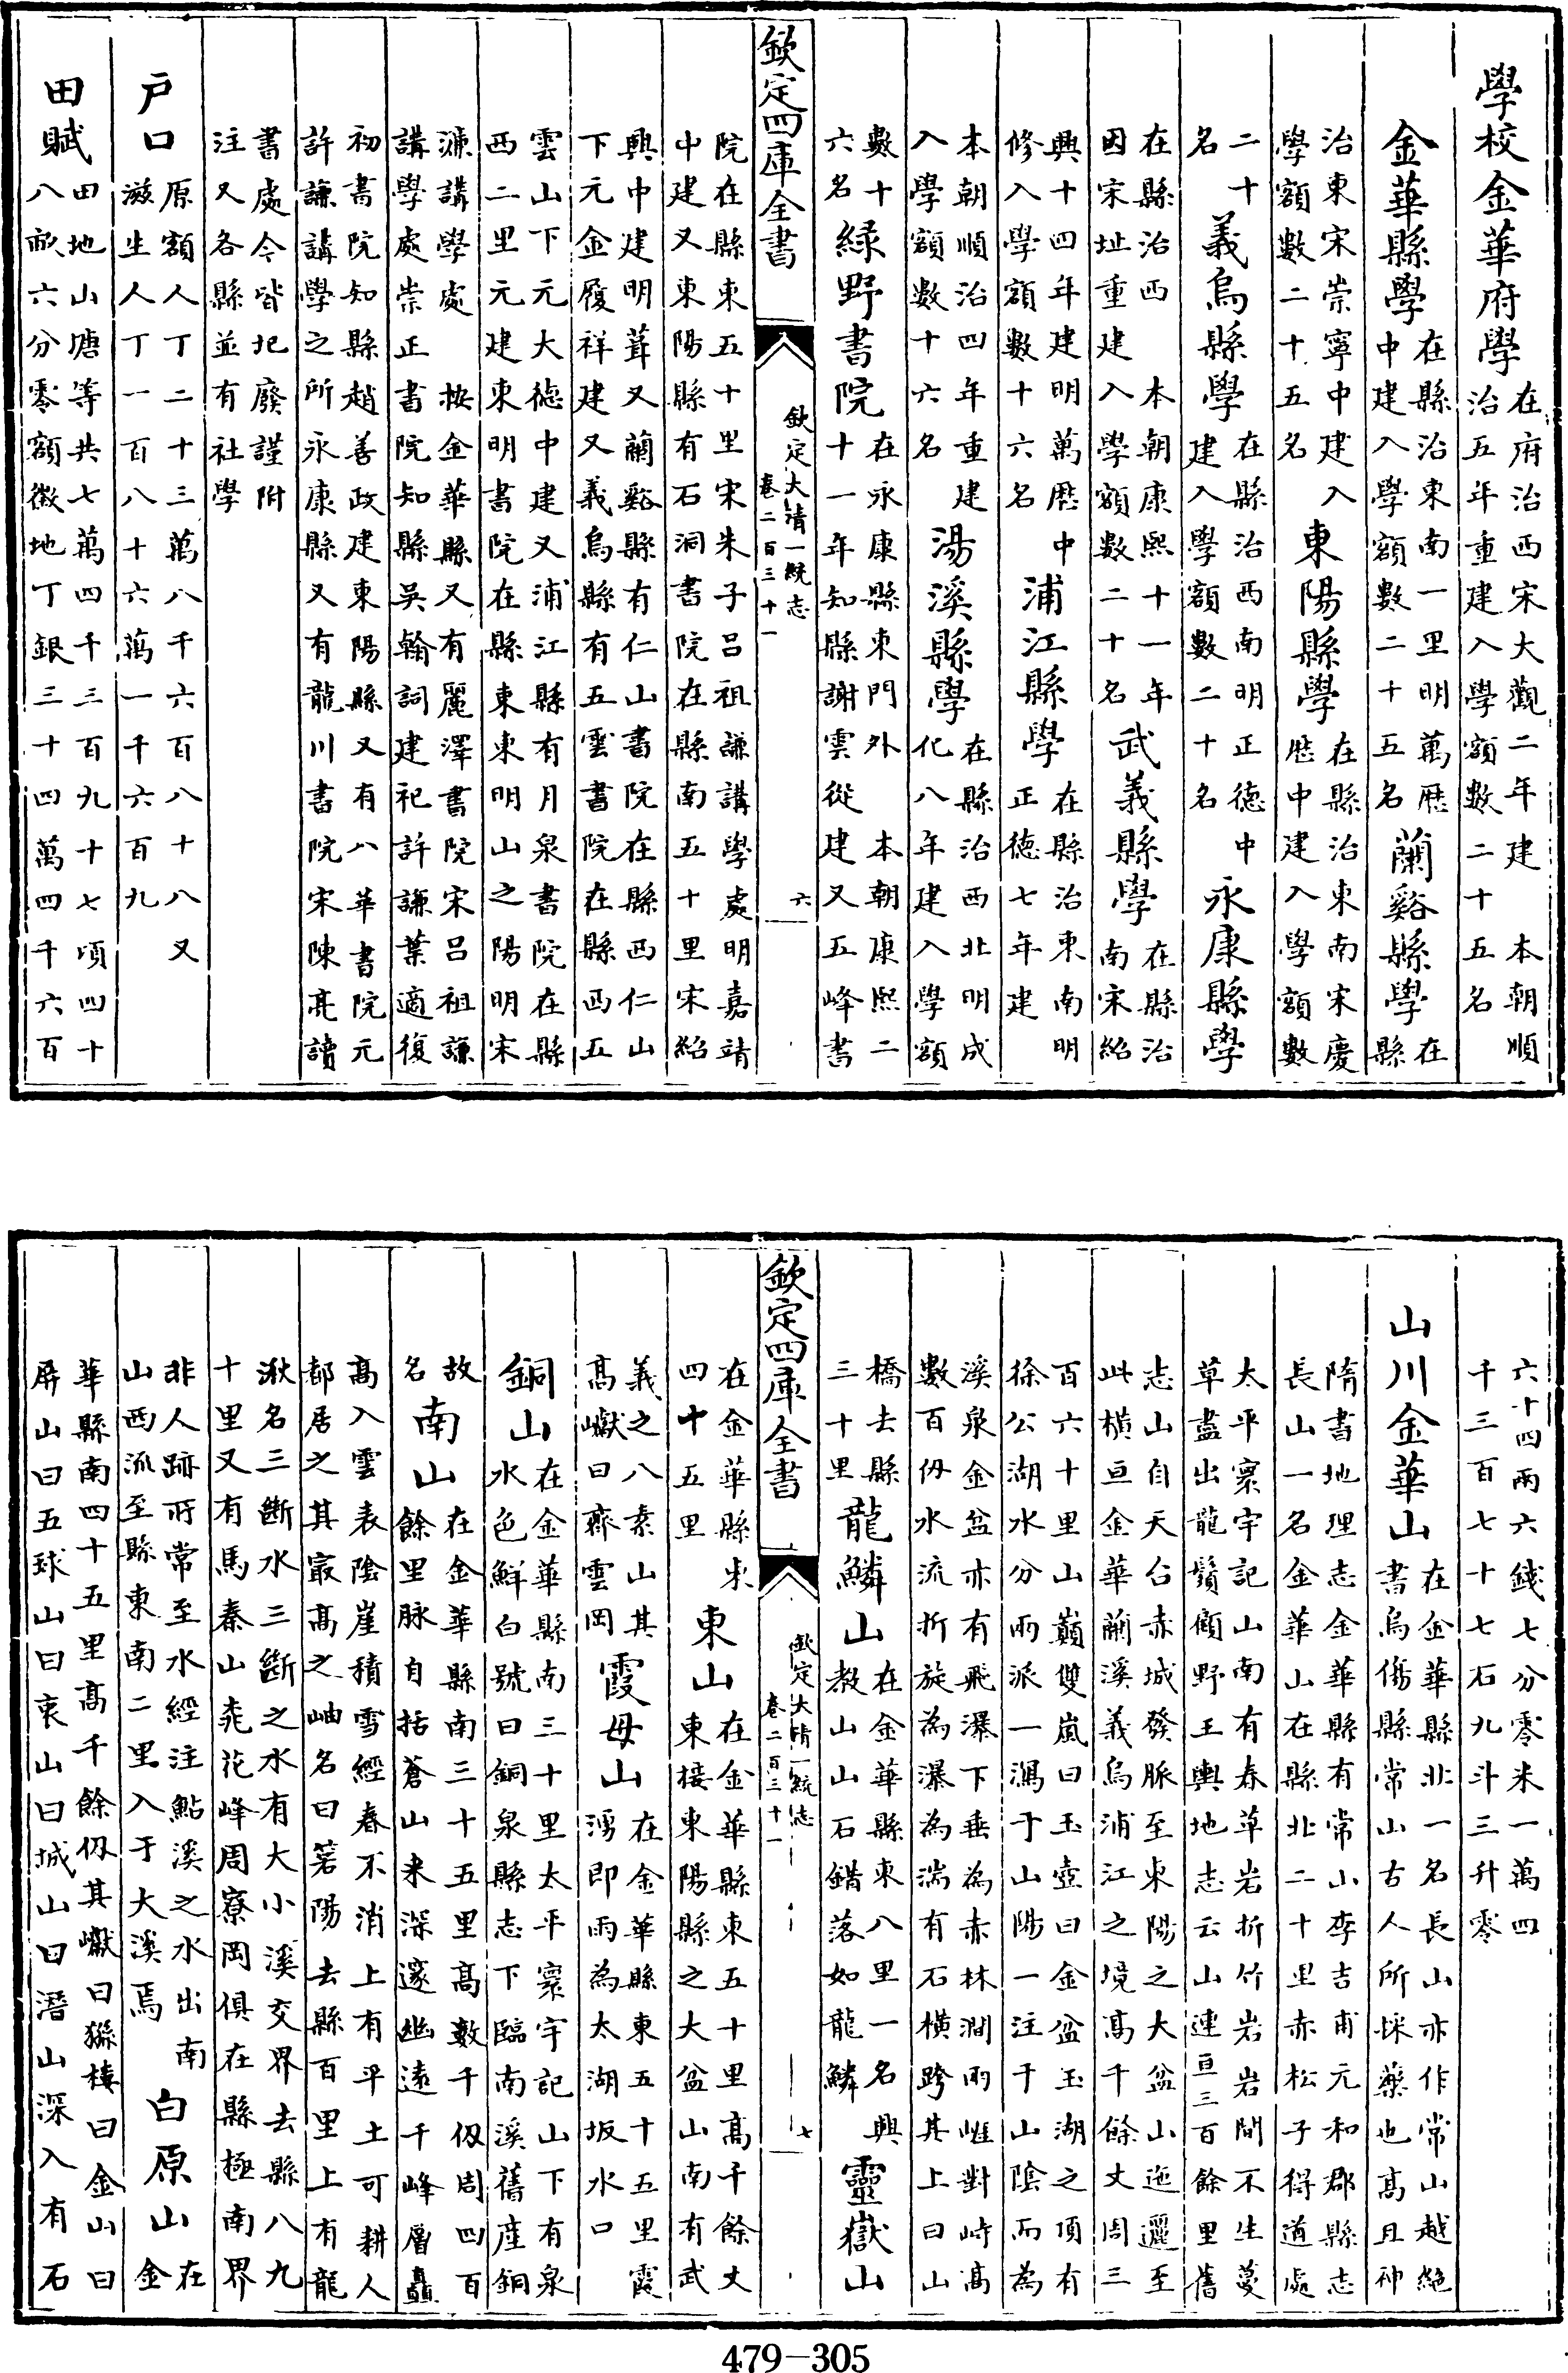 學校金華府學在府治西宋大觀二年建　本朝順
治五年重建入學額數二十五名
金華縣學在縣治東南一里明萬歷
中建入學額數二十五名蘭谿縣學在
縣
治東宋崇寧中建入
學額數二十五名東陽縣學在縣治東南宋慶
歷中建入學額數
二十
名義烏縣學在縣治西南明正德中
建入學額數二十名永康縣學
在縣治西　本朝康熙十一年
因宋址重建入學額數二十名武義縣學在縣治
南宋紹
興十四年建明萬歷中
修入學額數十六名浦江縣學在縣治東南明
正德七年建
本朝順治四年重建
入學額數十六名湯溪縣學在縣治西北明成
化八年建入學額
數十
六名緑野書院在永康縣東門外　本朝康熙二
十一年知縣謝雲從建又五峰書
欽定四庫全書
欽定大清一統志
卷二百三十一
六
院在縣東五十里宋朱子吕祖謙講學處明嘉靖
中建又東陽縣有石洞書院在縣南五十里宋紹
興中建明葺又蘭谿縣有仁山書院在縣西仁山
下元金履祥建又義烏縣有五雲書院在縣西五
雲山下元大德中建又浦江縣有月泉書院在縣
西二里元建東明書院在縣東東明山之陽明宋
濂講學處　按金華縣又有麗澤書院宋吕祖謙
講學處崇正書院知縣吳翰詞建祀許謙葉適復
初書院知縣趙善政建東陽縣又有八華書院元
許謙講學之所永康縣又有龍川書院宋陳亮讀
書處今皆圮廢謹附
注又各縣並有社學
户口原額人丁二十三萬八千六百八十八又
滋生人丁一百八十六萬一千六百九
田賦田地山塘等共七萬四千三百九十七頃四十
八畝六分零額徵地丁銀三十四萬四千六百
六十四兩六錢七分零米一萬四
千三百七十七石九斗三升零
山川金華山在金華縣北一名長山亦作常山越絶
書烏傷縣常山古人所採藥也高且神
隋書地理志金華縣有常山李吉甫元和郡縣志
長山一名金華山在縣北二十里赤松子得道處
太平寰宇記山南有春草岩折竹岩岩間不生蔓
草盡出龍鬚顧野王輿地志云山連亘三百餘里舊
志山自天台赤城發脈至東陽之大盆山迤邐至
此橫亘金華蘭溪義烏浦江之境高千餘丈周三
百六十里山巔雙嵐曰玉壺曰金盆玉湖之頂有
徐公湖水分兩派一瀉于山陽一注于山陰而為
溪泉金盆亦有飛瀑下垂為赤林澗兩崕對峙高
數百仞水流折旋為瀑為湍有石橫跨其上曰山
橋去縣
三十里龍鱗山在金華縣東八里一名興
教山山石錯落如龍鱗靈嶽山
欽定四庫全書
欽定大清一統志
卷二百三十一
七
在金華縣东
四十五里東山在金華縣東五十里高千餘丈
東接東陽縣之大盆山南有武
義之八素山其
高巘曰齊雲岡霞母山在金華縣東五十五里霞
湧即雨為太湖坂水口
銅山在金華縣南三十里太平寰宇記山下有泉
水色鮮白號曰銅泉縣志下臨南溪舊産銅
故
名南山在金華縣南三十五里高數千仭周四百
餘里脉自括蒼山来深邃幽遠千峰層矗
高入雲表陰崖積雪經春不消上有平土可耕人
都居之其最高之岫名曰箬陽去縣百里上有龍
湫名三斷水三斷之水有大小溪交界去縣八九
十里又有馬秦山桃花峰周寮岡俱在縣極南界
非人跡所常至水經注鮎溪之水出南
山西流至縣東南二里入于大溪焉白原山在
金
華縣南四十五里高千餘仭其巘曰猻棲曰金山曰
屏山曰五球山曰衷山曰城山曰潛山深入有石
479-305